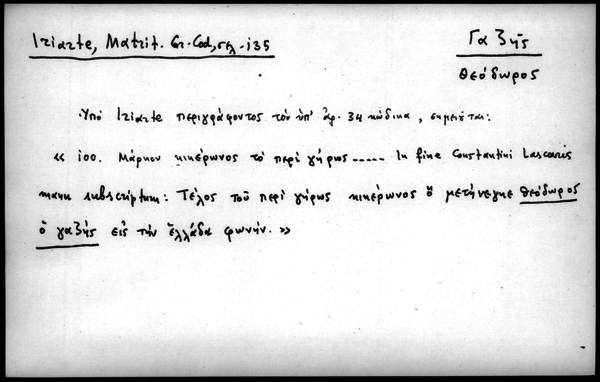 Iriarte, Matrit. Gr. Cod, σελ. 135
Γαζῆς
Θεόδωρος
Ὑπὸ Iriarte περιγράφοντος τὸν ὑπ' ἀρ. 34 κώδικα, σημειοῦται:
« 100. Μάρκου κικέρωνος τὸ περὶ γήρως ----- In fine Constantini Lascaris
manu subscriptum: Τέλος τοῦ περὶ γήρως κικέρωνος ὃ μετήνεγκε θεόδωρος
ὁ γαζῆς εἰς τὴν ἑλλάδα φωνήν. »